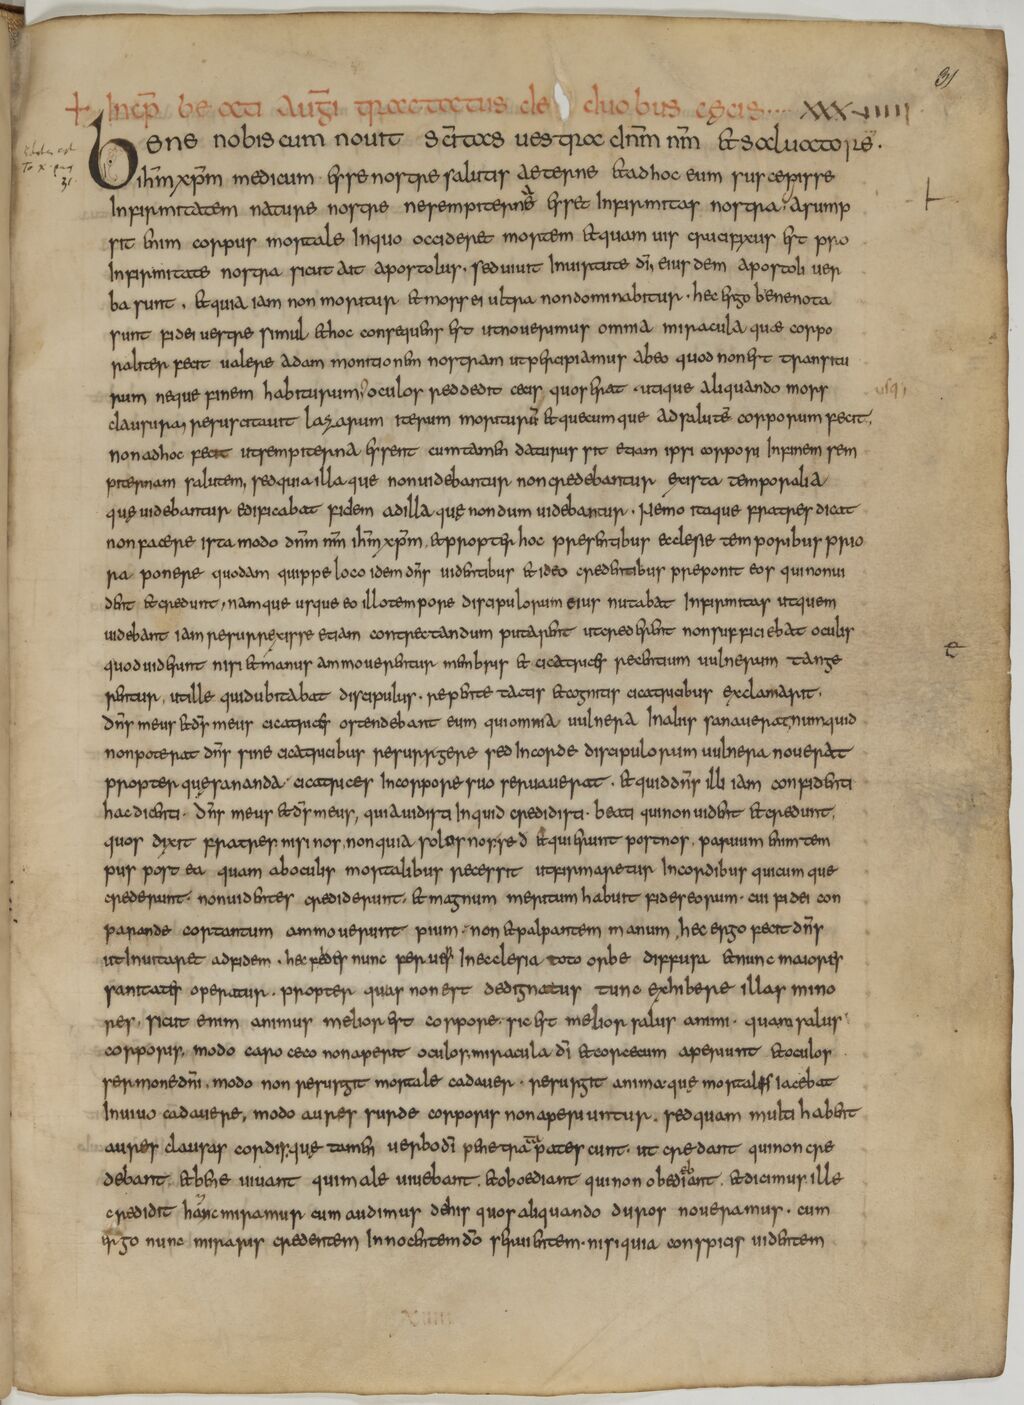 31
+ Incp̄ beati Auḡi tractatus de duobus cęcis... XXXVIIII
Bene nobiscum nouit sc̄itas uestra dn̄m nr̄m et saluatore.
ih̄m xp̄m medicum esse nostre salutis aeterne et ad hoc eum suscepisse
infirmitatem nature nostre ne sempiterna esset infirmitas nostra. Asump
sit enim corpus mortale in quo occideret mortem et quamuis crucifixus est pro
infirmitate nostra sicut ait apostolus. sed uiuit in uirtute dī, eiusdem apostoli uer
ba sunt. et quia iam non moritur et mors ei ultra non dominabitur. hec ergo bene nota
sunt fidei uestre simul et hoc consequens est ut nouerimus omnia miracula quae corpo
raliter fecit ualere ad ammonitionem nostram ut percipiamus ab eo quod non est transitu
rum neque finem habiturum, oculos reddedit cecis quos erat utique aliquando mors
clausura, resuscitauit lazarum iterum moriturū et quecumque ad salutē corporum fecit,
non ad hoc fecit ut sempiterna essent cum tamen daturus sit etiam ipsi corpori in finem sem
piternam salutem, sed quia illa que non uidebantur non credebantur ex ista temporalia
quę uidebantur edificabat fidem ad illa quę nondum uidebantur. Nemo itaque fratres dicat
non facere ista modo dn̄m nr̄m ih̄m xp̄m et propter hoc presentibus ecclesie temporibus prio
ra ponere quodam quippe loco idem dn̄s uidentibus et ideo credentibus preponit eos qui non ui
dent et credunt, namque usque eo illo tempore discipulorum eius nutabat infirmitas ut quem
uidebant iam resurrexisse etiam contrectandum putarent ut crederent non sufficiebat oculis
quod uiderunt nisi et manus ammouerentur membris et cicatrices recentium uulnerum tange
rentur, ut ille qui dubitabat discipulus. repente tactis et cognitis cicatricibus exclamarit.
dn̄s meus et ds̄ meus cicatrices ostendebant eum qui omnia uulnera in aliis sanauerat, numquid
non poterat dn̄s sine cicatricibus resurrigere sed in corde discipulorum uulnera nouerat
propter que sananda cicatrices in corpore suo seruauerat. et quid dn̄s illi iam confidenti
hac dicenti. dn̄s meus et ds̄ meus, quia uidisti inquid credidisti. beati qui non uident et credunt,
quos dixit fratres nisi nos, non quia solos nos sed et qui erunt post nos. paruum enim tem
pus post ea quam ab oculis mortalibus recessit ut firmaretur in cordibus quicumque
crederunt. non uidentes crediderunt. et magnum meritum habuit fides eorum. cui fidei con
parande cor tantum ammouerunt pium. non et palpantem manum, hec ergo fecit dn̄s
ut inuitaret ad fidem. hec fides nunc feruet in ecclesia toto orbe diffusa et nunc maiores
sanitates operatur. propter quas non est dedignatus tunc exhibere illas mino
res, sicut enim animus melior est corpore. sic est melior salus animi. quam salus
corporis, modo caro ceco non aperit oculos miracula dī et cor cecum aperiunt et oculos
sermone dn̄i, modo non resurgit mortale cadauer. resurgit anima quę mortalis iacebat
in uiuo cadauere, modo aures surde corporis non aperiuntur. sed quam multi habent
aures clausas cordis, quę tamen uerbo dī penetrante patescunt. ut credant qui non cre
debant. et bene uiuant qui male uiuebant. et obediant qui non obediebant. et dicimus ille
credidit hanc miramur cum audimus de his quos aliquando duros noueramus. cum
ergo nunc miraris credentem innocentem dō seruientem. nisi quia conspicis uidentem